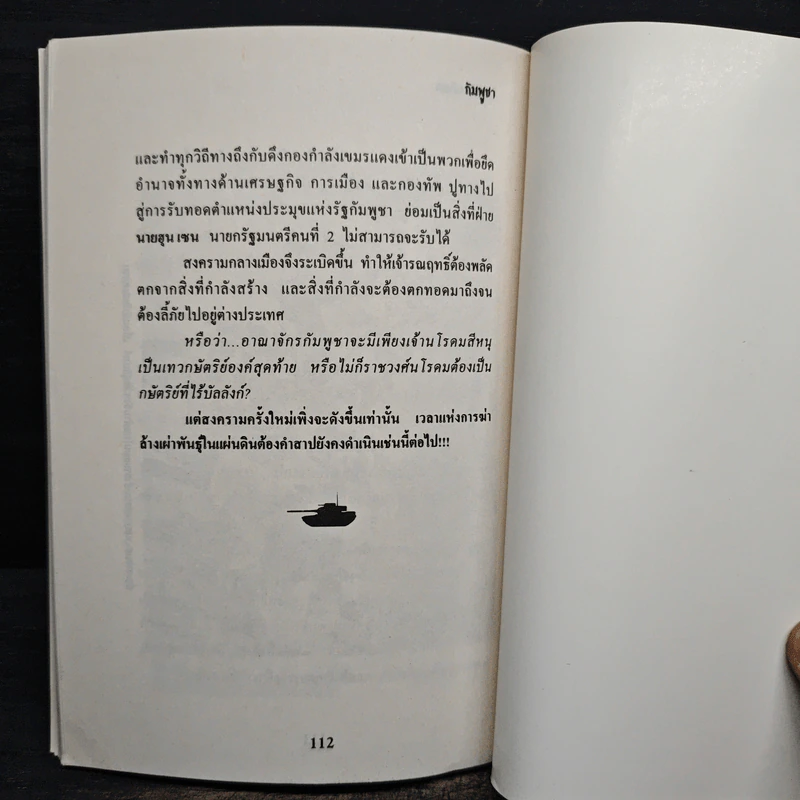 กัมพูชา
และทำทุกวิถีทางถึงกับดึงกองกำลังเขมรแดงเข้าเป็นพวกเพื่อยึด
อำนาจทั้งทางด้านเศรษฐกิจ การเมือง และกองทัพ ปูทางไป
สู่การรับทอดตำแหน่งประมุขแห่งรัฐกัมพูชา ย่อมเป็นสิ่งที่ฝ่าย
นายฮุน เซน นายกรัฐมนตรีคนที่ 2 ไม่สามารถจะรับได้
สงครามกลางเมืองจึงระเบิดขึ้น ทำให้เจ้ารณฤทธิ์ต้องพลัด
ตกจากสิ่งที่กำลังสร้าง และสิ่งที่กำลังจะต้องตกทอดมาถึงจน
ต้องลี้ภัยไปอยู่ต่างประเทศ
หรือว่า...อาณาจักรกัมพูชาจะมีเพียงเจ้านโรดมสีหนุ
เป็นเทวกษัตริย์องค์สุดท้าย หรือไม่ก็ราชวงศ์นโรดมต้องเป็น
กษัตริย์ที่ไร้บัลลังก์?
แต่สงครามครั้งใหม่เพิ่งจะดังขึ้นเท่านั้น เวลาแห่งการฆ่า
ล้างเผ่าพันธุ์ในแผ่นดินต้องคำสาปยังคงดำเนินเช่นนี้ต่อไป!!!
112